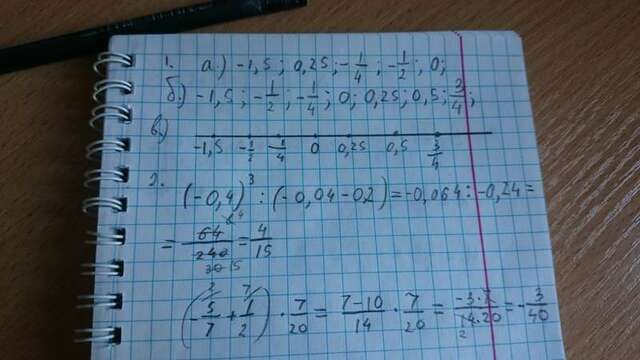 1. а.) -1,5; 0,25; -1/4; -1/2; 0;
б.) -1,5; -1/2; -1/4; 0; 0,25; 0,5; 3/4;
в.)
-1,5 -1/2 -1/4 0 0,25 0,5 3/4
2. (-0,4)³ : (-0,04-0,2) = -0,064 : -0,24 =
= 64/240 = 4/15
4 30 15
2 7
(-5/7 + 1/2) · 7/20 = 7-10/14 · 7/20 = -3·7/14·20 = -3/40
2